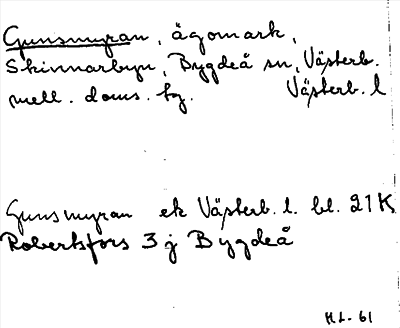 Gunsmyran, ägomark,
Skinnarbyn, Bygdeå sn, Västerb.
mell. doms. tg. Västerb. l
Gunsmyran ek Västerb. l. bl. 21K
Robertsfors 3 j Bygdeå
H.L. 61